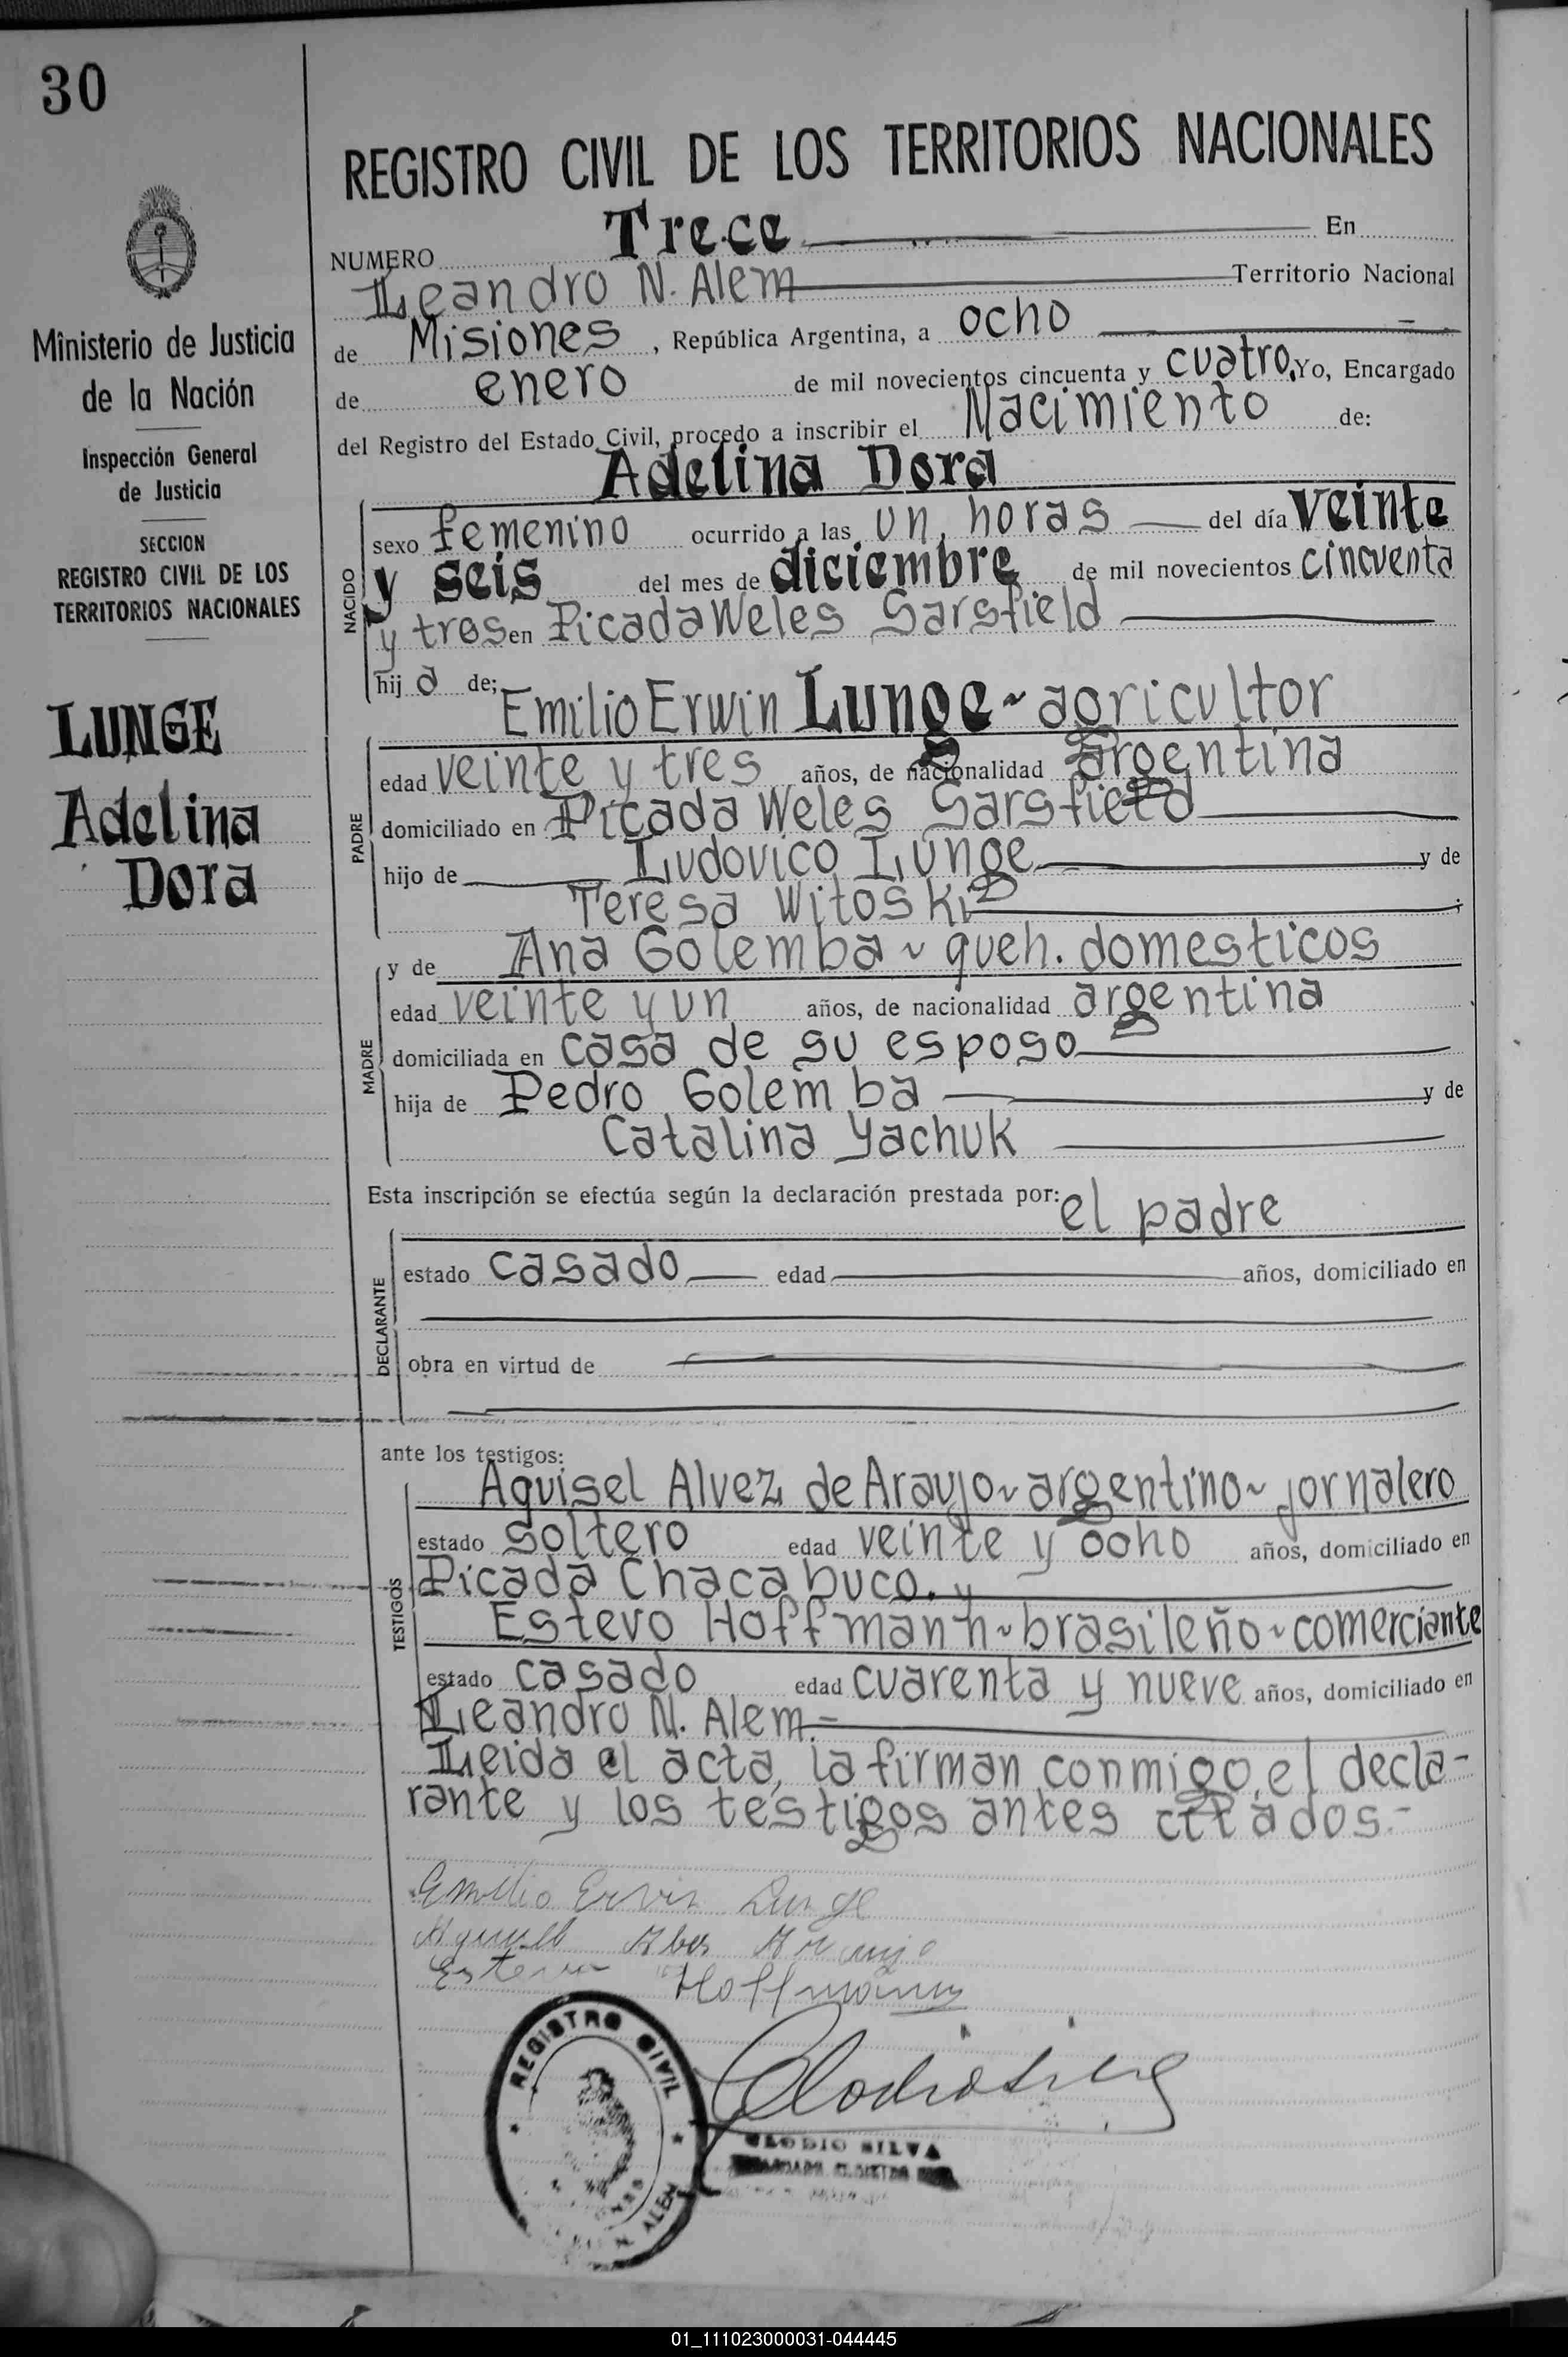 30
REGISTRO CIVIL DE LOS TERRITORIOS NACIONALES
NUMERO Trece En
Leandro N. Alem Territorio Nacional
de Misiones, República Argentina, a ocho
de enero de mil novecientos cincuenta y cuatro. Yo, Encargado
del Registro del Estado Civil, procedo a inscribir el Nacimiento de:
Adelina Dora
NACIDO
sexo femenino ocurrido a las un horas del día veinte
y seis del mes de diciembre de mil novecientos cincuenta
y tres en Picada Weles Sarsfield
hija de;
Emilio Erwin Lunge ~ agricultor
PADRE
edad veinte y tres años, de nacionalidad argentina
domiciliado en Picada Weles Sarsfield
hijo de Ludovico Lunge y de
Teresa Witoski;
y de Ana Golemba ~ queh. domesticos
MADRE
edad veinte y un años, de nacionalidad argentina
domiciliada en casa de su esposo
hija de Pedro Golemba y de
Catalina Yachuk
Esta inscripción se efectúa según la declaración prestada por: el padre
DECLARANTE
estado casado edad años, domiciliado en
obra en virtud de
ante los testigos:
TESTIGOS
Aguisel Alvez de Araujo ~ argentino ~ jornalero
estado soltero edad veinte y ocho años, domiciliado en
Picada Chacabuco. y
Estevo Hoffmann ~ brasileño ~ comerciante
estado casado edad cuarenta y nueve años, domiciliado en
Leandro N. Alem.-
Leida el acta, la firman conmigo, el decla-
rante y los testigos antes citados.-
Emilio Ervin Lunge
Hoffmann
REGISTRO CIVIL
ALEM
CLODIO SILVA
Ministerio de Justicia
de la Nación
Inspección General
de Justicia
SECCION
REGISTRO CIVIL DE LOS
TERRITORIOS NACIONALES
LUNGE
Adelina
Dora
01_111023000031-044445